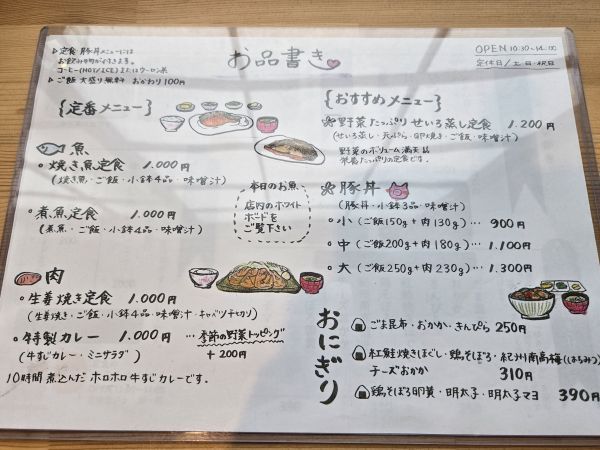 ▷定食・豚丼メニューには
お飲み物が付きます。
コーヒー(HOT/ICE)またはウーロン茶
▷ご飯 大盛り無料 おかわり100円
お品書き
OPEN 10:30~14:00
定休日/土日・祝日
{定番メニュー}
魚
・焼き魚定食 1.000円
(焼き魚・ご飯・小鉢4品・味噌汁)
・煮魚定食 1.000円
(煮魚・ご飯・小鉢4品・味噌汁)
本日のお魚
店内のホワイト
ボードを
ご覧下さい
肉
・生姜焼き定食 1.000円
(生姜焼き・ご飯・小鉢4品・味噌汁・キャベツ千切り)
・特製カレー 1.000円 …季節の野菜トッピング
+200円
(牛すじカレー・ミニサラダ)
10時間煮込んだホロホロ牛すじカレーです。
{おすすめメニュー}
野菜たっぷりせいろ蒸し定食 1.200円
(せいろ蒸し・天ぷら・卵焼き・ご飯・味噌汁)
野菜のボリューム満点
栄養たっぷりの定食です。
豚丼
(豚丼・小鉢3品・味噌汁)
・小(ご飯150g+肉130g)… 900円
・中(ご飯200g+肉180g)… 1.100円
・大(ご飯250g+肉230g)… 1.300円
おにぎり
ごま昆布・おかか・きんぴら 250円
紅鮭焼きほぐし・鶏そぼろ・紀州南高梅(はちみつ)
チーズおかか 310円
鶏そぼろ卵黄・明太子・明太子マヨ 390円